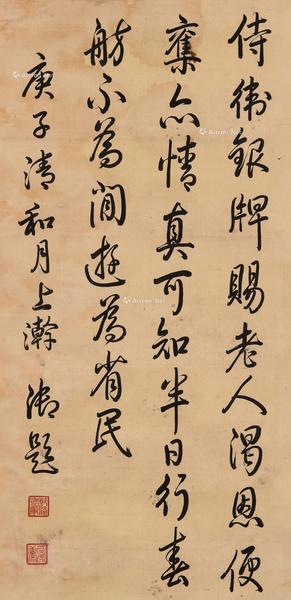 侍衛銀牌賜老人渴恩便
奪亦情真可知半日行春
舫不為閒遊為省民
庚子清和月上澣 御題